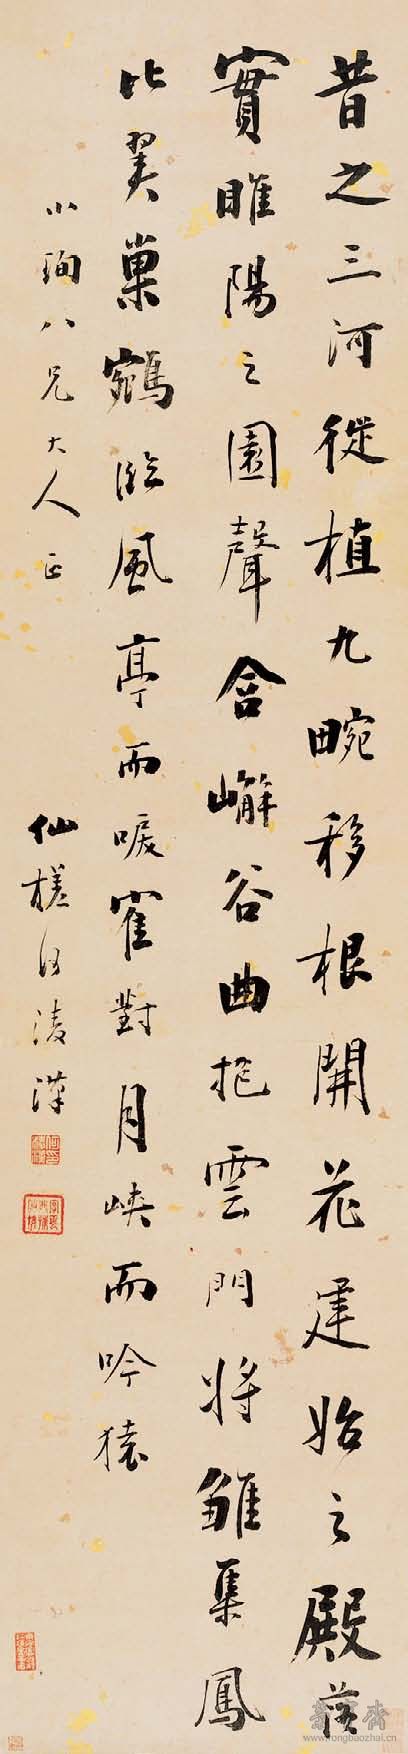 昔之三河從植九畹移根開花建始之殿落
實睢陽之園聲含嶰谷曲抱雲門將雛集鳳
比翼巢鵷臨風亭而唳寉對月峽而吟猿
小珣八兄大人正
仙槎何淩漢
榮寶齋
www.rongbaozhai.cn